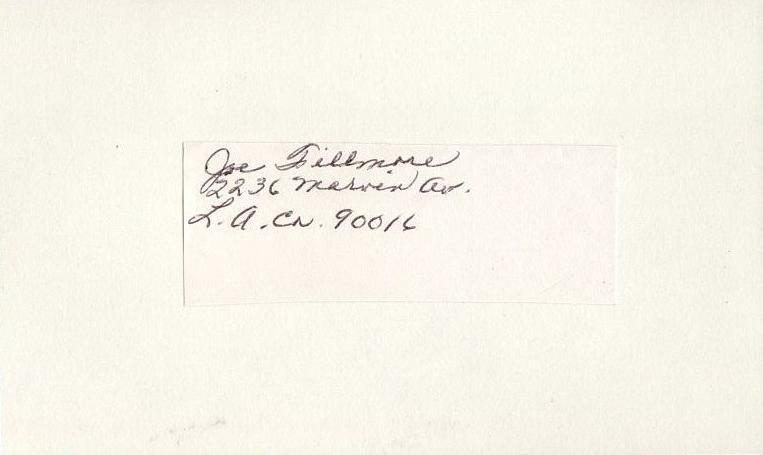 Joe Fillmore
2236 Marvin Av.
L.A. Ca. 90016